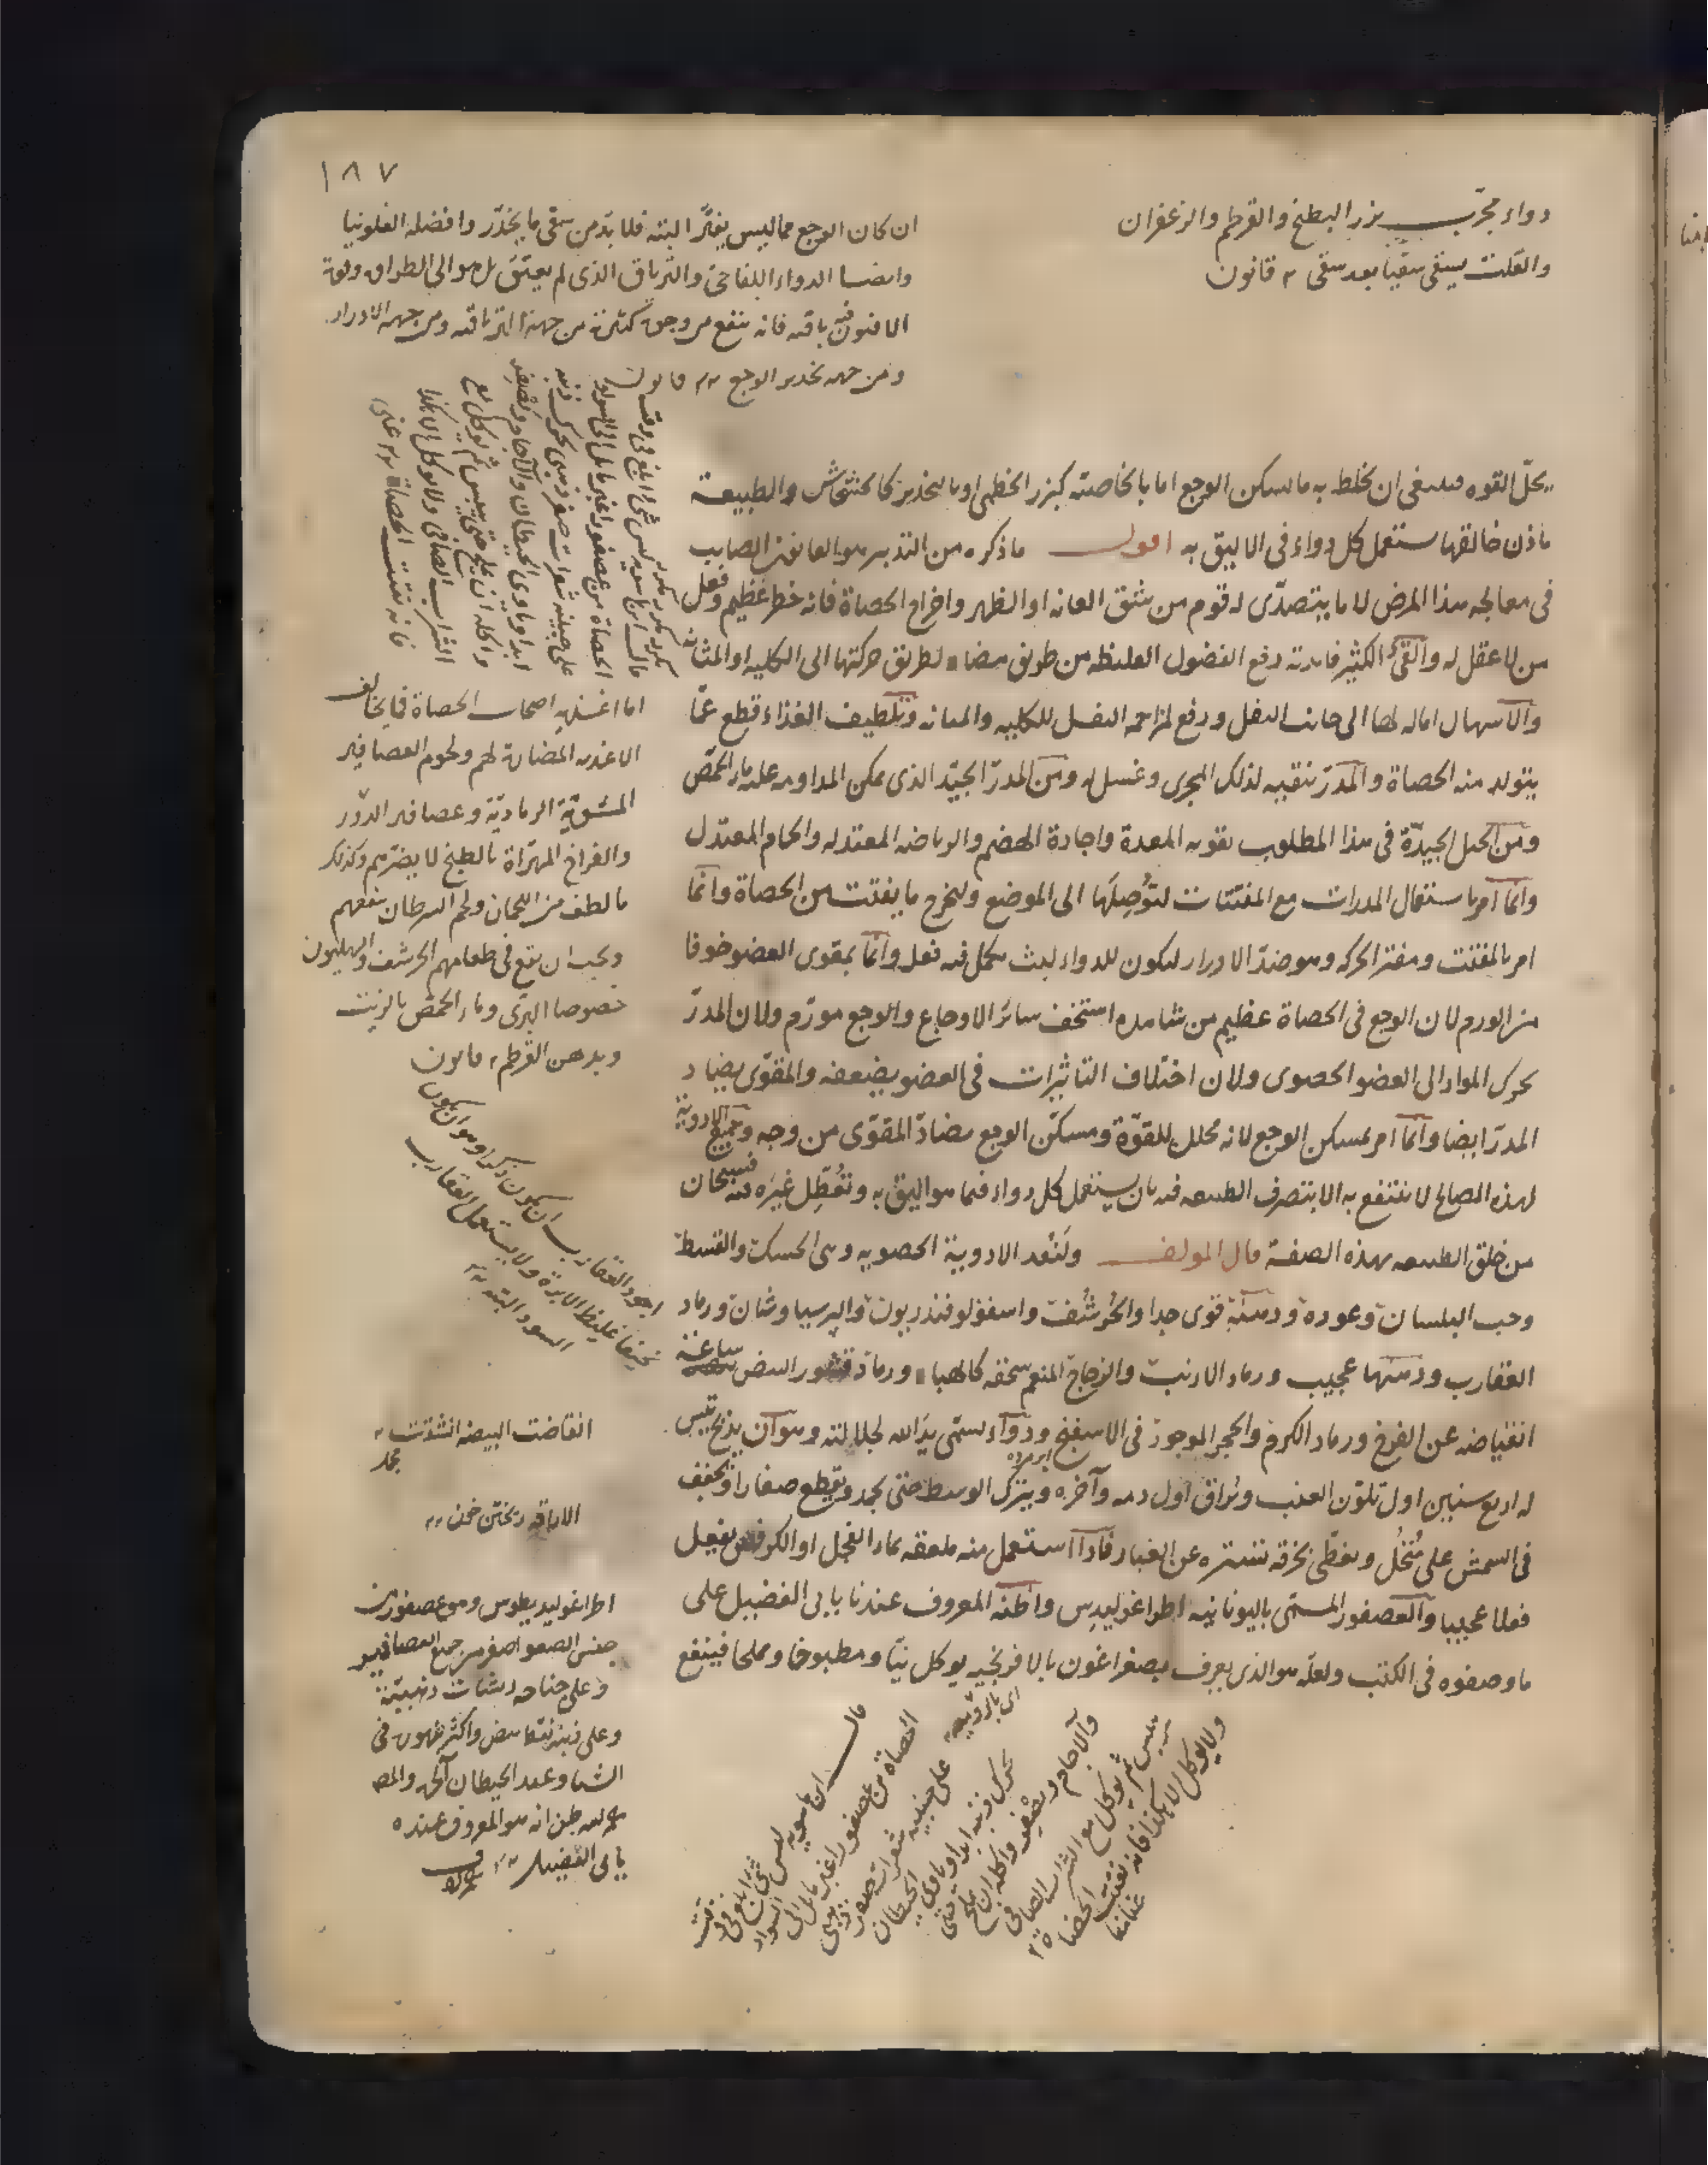 ١٨٧
دواء مجرّب بزر البطيخ والقرطم والزعفران
والقلت يسقى سقيا بعد سقى ٢ قانون
ان كان الوجع مما ليس يفتّر البتة فلا بدّ من سقى ما يخدّر وافضله الفلونيا
وايضا الدواء اللفاحى والترياق الذى لم يعتق بل هو الى الطراوة وقوة
الافيون فيه باقية فانه ينفع من وجوه كثيرة من جهة الترياقية ومن جهة الادرار
ومن جهة تخدير الوجع قانون
يحلّ القوه فينبغى ان يخلط به ما يسكن الوجع اما بالخاصية كبزر الخطمى او بالتخدير كالخشخاش والطبيعة
باذن خالقها تستعمل كل دواء فى الاليق به اقول ما ذكره من التدبير هو القانون الصايب
فى معالجة هذا المرض لا ما يتصدّى له قوم من شق العانة او الظهر واخراج الحصاة فانه خطر عظيم وفعل
من لا عقل له والقئ الكثير فايدته دفع الفضول الغليظة من طريق مضاد لطريق حركتها الى الكلية او المثانة
والاسهال امالة لها الى جانب الثفل ودفع لمزاحمة الثفل للكلية والمثانة وتلطيف الغذاء قطع عمّا
يتولد منه الحصاة والمدرّ تنقية لذلك المجرى وغسل له ومن المدرّ الجيّد الذى يمكن المداومة عليه ماء الحمّص
ومن الحيل الجيدّة فى هذا المطلوب تقوية المعدة واجادة الهضم والرياضة المعتدلة والحمام المعتدل
وانّما امر باستعمال المدرات مع المفتتات لتُوصِلَها الى الموضع وليخرج ما يفتت من الحصاة وانّما
امر بالمفتت ومفتر الحركة وهو ضدّ الادرار ليكون للدواء لبث يكمل فيه فعله وانّما بمقوى العضو خوفا
من الورم لان الوجع فى الحصاة عظيم من شاهده استخف سائر الاوجاع والوجع مورّم ولان المدرّ
يحرك المواد الى العضو الحصوى ولان اختلاف التاثيرات فى العضو يضعفه والمقوّى يضاد
المدرّ ايضا وانّما امر بمسكن الوجع لانه محلل للقوّة ومسكّن الوجع مضادّ المقوّى من وجه وجميع الادوية
لهذه المصالح لا ينتفع به الا بتصرف الطبيعة فيه بان يستعمل كل دواء فيما هو اليق به وتُعطّل غيرَه فيه فسبحان
من خلق الطبيعة بهذه الصفة قال المولف ولنَعُد الادوية الحصوية وهى الحسك والقسط
وحب البلسان وعوده ودهنه قوى جدا والحُرشُف واسقولوفندريون والبرسياوشان ورماد
العقارب ودهنها عجيب ورماد الارنب والزجاج المنعم سحقه كالهباء ورماد قشور البيض ساعة
انقياضه عن الفرخ ورماد الكرم والحجر الموجود فى الاسفنج ودواء يسمّى يدَالله لجلالته وهو ان يذبح تيس
له اربع سنين اول تلوّن العنب ويُراق اول دمه وآخره ويترك الوسط حتى يجمد ويقطع صغارا ويجفف
فى الشمس على مُنخُل ويغطّى بخرقة تستره عن الغبار فاذا استعمل منه ملعقة بماء الفجل او الكرفس يفعل
فعلا عجيبا والعصفور المسمّى باليونانية اطراغوليدِس واظنه المعروف عندنا بابى الفضيل على
ما وصفوه فى الكتب ولعلّه هو الذى يعرف بصفراغون بالافرنجيه يوكل نيّا ومطبوخا ومملحا فينفع
ابر مرده
قال ابن ماسويه ليس شئ ابلغ فى تفتيت
الحصاة من عصفور اغبر مائل الى السواد
على جبينه شعرات صفر ذهبى
يحرك ذنبه ابدا وياوى الحيطان
والآجام ويصفر واكله ان يملح حتى
ييبس ثم يوكل مع الشراب الصافى
ولا يوكل الا هكذا فانه يفتت الحصاة
اما اغذية اصحاب الحصاة فما يخالف
الاغذية المضارة لهم ولحوم العصافير
المشوّية الرماديّة وعصافير الدّور
والفراخ المهرّاة بالطبخ لا يضرّهم وكذلك
ما لطف من اللحمان ولحم السرطان ينفعهم
ويجب ان يقع فى طعامهم الحرشف والهليون
خصوصا البرّى وماء الحمّص بالزيت
وبدهن القرطم ٢ قانون
اجود العقارب ان يكون ذكرا وهو ان يكون
نحيفا غليظ الابرة ولا يستعمل العقارب
السود البتة
انقاضت البيضة انشقت
الاراقة ريختن خون
اطراغوليديطوس وهو عصفور من
جنس الصعو اصغر من جميع العصافير
وعلى جناحه ريشات ذهبيّة
وعلى ذنبه نقط بيض واكثر ظهوره فى
الشتاء وعند الحيطان
ظن انه هو المعروف عنده
بابى الفضيل